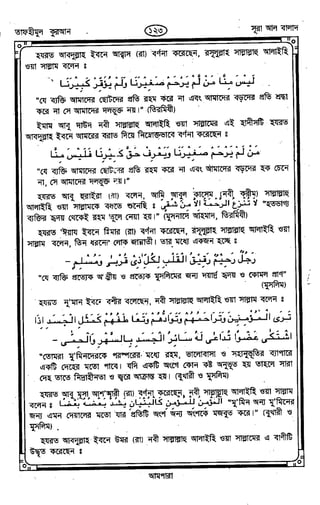 তাফহীমুল কুরআন
১২৩
সূরা আল বালাদ
হযরত আবদুল্লাহ ইবনে আব্বাস (রা) বর্ণনা করেছেন, রসূলুল্লাহ সাল্লাল্লাহু আলাইহি
ওয়া সাল্লাম বলেন :
لَيْسَ مِنَّا مَنْ لَمْ يَرْحَمْ صَغِيْرَنَا وَلَمْ يُوَقِّرْ كَبِيْرَنَا
"যে ব্যক্তি আমাদের ছোটদের প্রতি রহম করে না এবং আমাদের বড়দের প্রতি শ্রদ্ধা
করে না সে আমাদের দলভুক্ত নয়।" (তিরমিযী)
ইমাম আবু দাউদ নবী সাল্লাল্লাহু আলাইহি ওয়া সাল্লামের এই হাদীসটি হযরত
আবদুল্লাহ ইবনে আমরের বরাত দিয়ে নিম্নোক্তভাবে বর্ণনা করেছেন :
مَنْ لَمْ يَرْحَمْ صَغِيْرَنَا وَيَعْرِفْ حَقَّ كَبِيْرِنَا فَلَيْسَ مِنَّا
"যে ব্যক্তি আমাদের ছোটদের প্রতি রহম করে না এবং আমাদের বড়দের হক চেনে
না, সে আমাদের দলভুক্ত নয়।"
হযরত আবু হুরাইরা (রা) বলেন, আমি আবুল কাসেম (নবী করীম) সাল্লাল্লাহু
আলাইহি ওয়া সাল্লামকে বলতে শুনেছি : لَا تُنْزَعُ الرَّحْمَةُ اِلَّا مِنْ شَقِيٍّ "হতভাগ্য
ব্যক্তির হৃদয় থেকেই রহম তুলে নেয়া হয়।" (মুসনাদে আহমাদ, তিরমিযী)
হযরত ঈয়ায ইবনে হিমার (রা) বর্ণনা করেছেন, রসূলুল্লাহ সাল্লাল্লাহু আলাইহি ওয়া
সাল্লাম বলেন, তিন ধরনের লোক জান্নাতী। তার মধ্যে একজন হচ্ছে :
رَجُلٌ رَحِيْمٌ رَقِيْقُ الْقَلْبِ لِكُلِّ ذِى قُرْبٰى وَمُسْلِمٍ -
"যে ব্যক্তি প্রত্যেক আত্মীয় ও প্রত্যেক মুসলিমের জন্য দয়ার্দ্র হৃদয় ও কোমল প্রাণ"
(মুসলিম)
হযরত নু'মান ইবনে বশীর বলেছেন, নবী সাল্লাল্লাহু আলাইহি ওয়া সাল্লাম বলেন :
تَرَى الْمُؤْمِنِيْنَ وَتَرَاحُمِهِمْ وَتَوَادِّهِمْ وَتَعَاطُفِهِمْ كَمَثَلِ الْجَسَدِ اِذَا
اشْتَكٰى عُضْوًا تَدَاعٰى لَهٗ سَائِرُ الْجَسَدِ بِالسَّهَرِ وَالْحُمّٰى -
"তোমরা মু'মিনদেরকে পরস্পরের মধ্যে রহম, ভালোবাসা ও সহানুভূতির ব্যাপারে
একটি দেহের মতো পাবে। যদি একটি অংগে কোন কষ্ট অনুভূত হয় তাহলে সারা
দেহ তাতে নিদ্রাহীনতা ও জ্বরে আক্রান্ত হয়। (বুখারী ও মুসলিম)
হযরত আবু মূসা আশ'আরী (রা) বর্ণনা করেছেন, নবী সাল্লাল্লাহু আলাইহি ওয়া সাল্লাম
বলেন : اَلْمُؤْمِنُ لِلْمُؤْمِنِ كَالْبُنْيَانِ يَشُدُّ بَعْضُهٗ بَعْضًا "মু'মিন অন্য মু'মিনের
জন্য এমন দেয়ালের মতো যার প্রতিটি অংশ অন্য অংশকে মজবুত করে।" (বুখারী ও
মুসলিম)
হযরত আবদুল্লাহ ইবনে উমর (রা) নবী সাল্লাল্লাহু আলাইহি ওয়া সাল্লামের এ বাণীটি
উদ্ধৃত করেছেন :
আমপারা